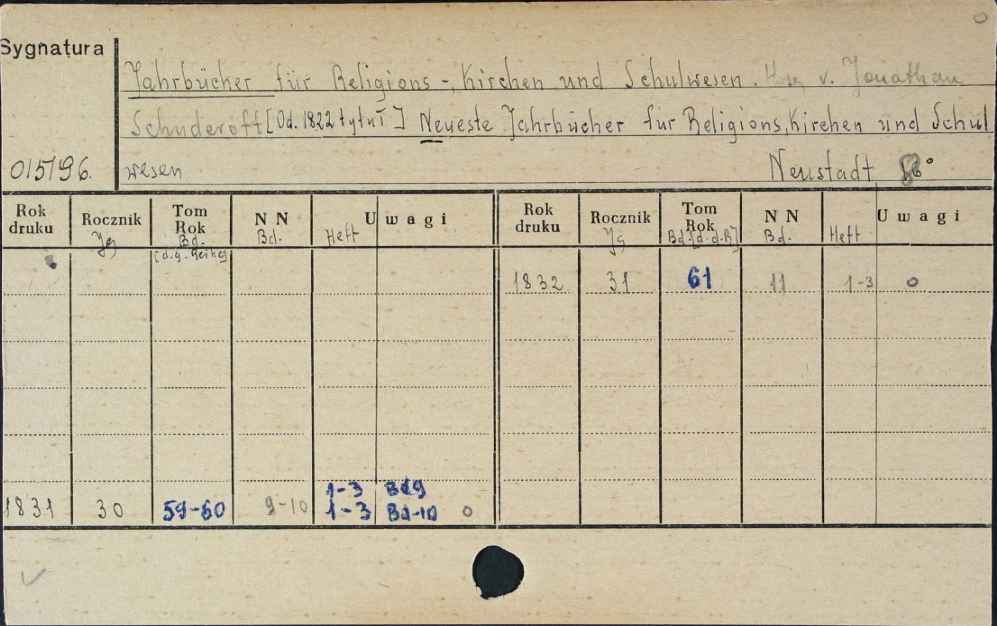 Sygnatura
Jahrbücher für Religions-, Kirchen und Schulwesen. Hrsg v. Jonathan
Schuderoff [Od. 1822 tytuł] Neueste Jahrbücher für Religions, Kirchen und Schul
015196. wesen Neustadt 8°
Rok druku Rocznik Tom Rok N N Uwagi Rok druku Rocznik Tom Rok N N Uwagi
Jg Bd. Bd. Heft Jg Bd. [d.d.R] Bd. Heft
[d.g. Reihe]
1832 31 61 11 1-3 0
1-3 Bd9
1831 30 59-60 9-10 1-3 Bd-10 0